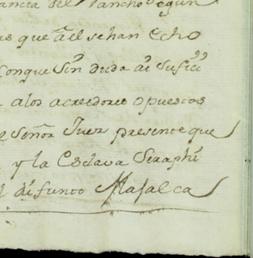 ancia del Rancho segun
as que âel se han Echo
Conque Sin duda ai Sufici
a alos acreedores opuestos
e Señor Juez presente que
y la Esclava Seraphi
l difunto Mafalca